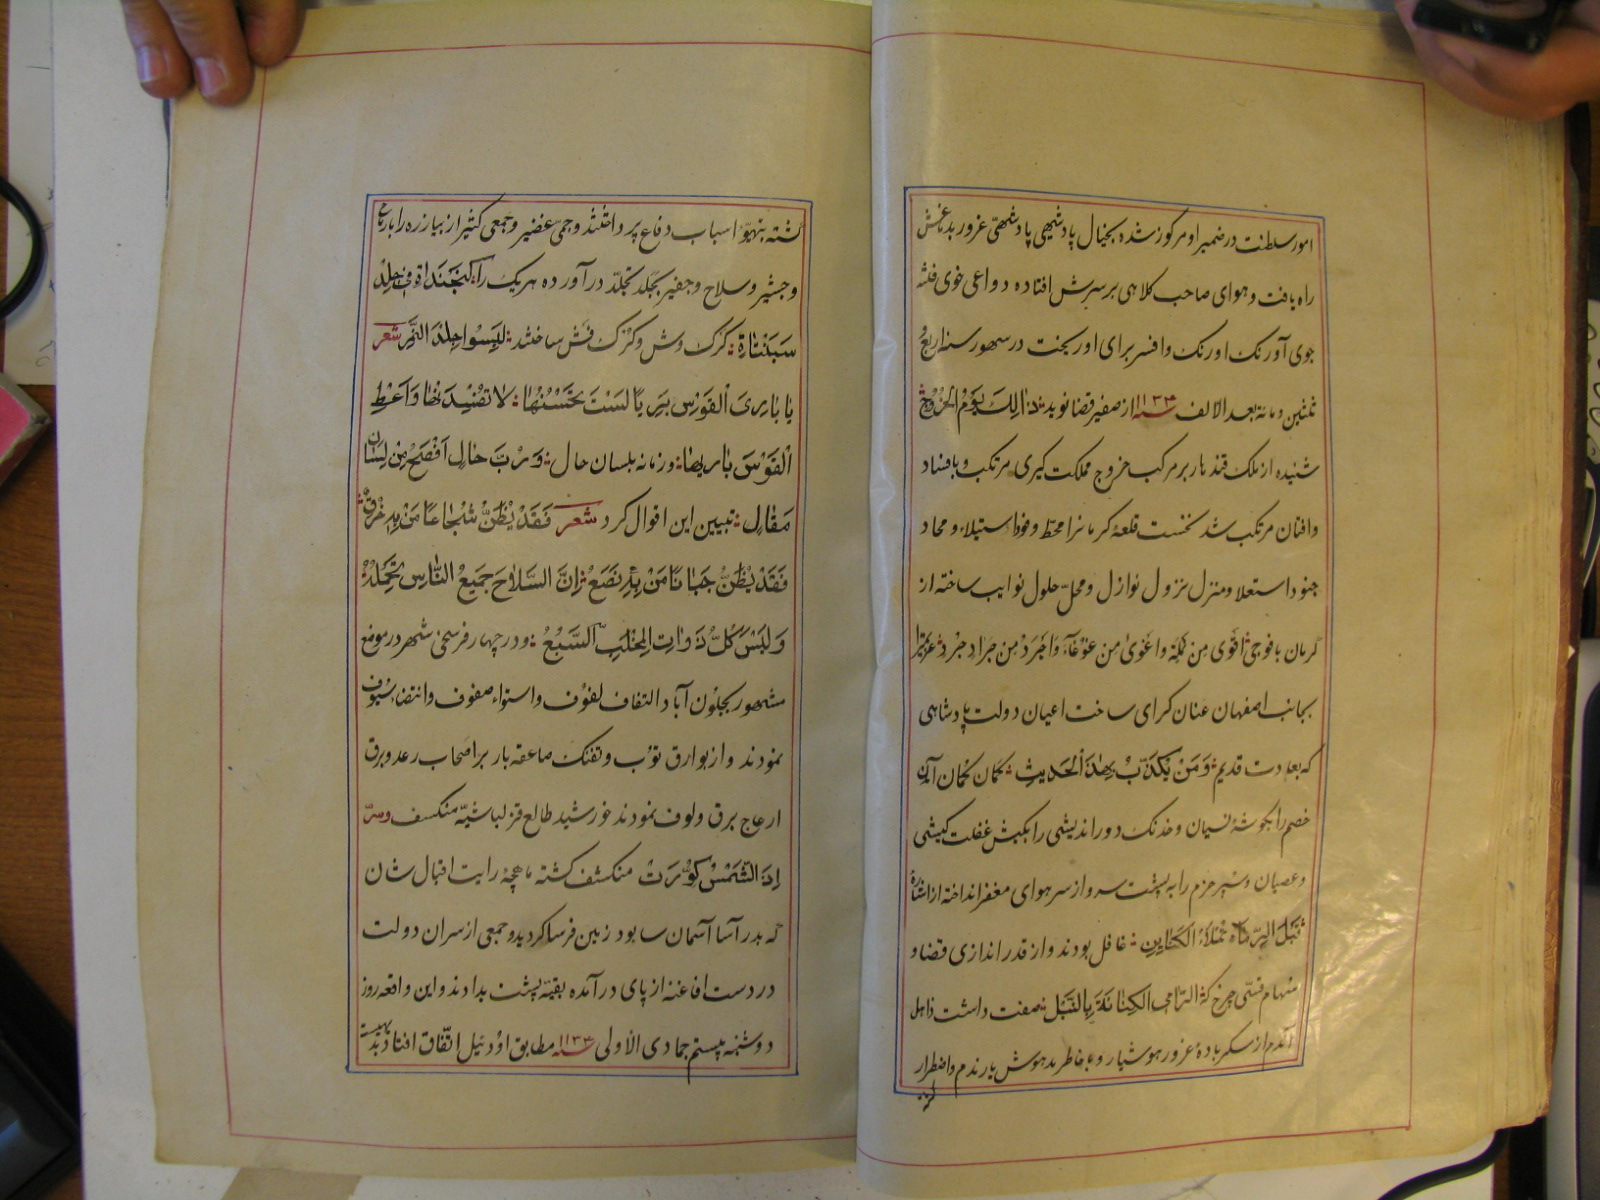 امور سلطنت در ضمیر او مرکوز شده بخیال پادشهی پادشهی غرور بدماغش
راه یافت و هوای صاحب کلاهی بر سرش افتاده دواعی خوی فتنه
جوی آورنک اورنک وافسر برای اور بخت در شهور سنه اربع و
ثلثین و مائة بعد الالف سنه ۱۱۳۴ از صفیر قضا نوید ذالِكَ یَوْمُ الْخُرُوج
شنیده از ملک قندهار بر مرکب خروج مملکت کیری مرتکب و بافساد
وافتان مرتکب شد نخست قلعهٔ کرمانرا محطّ وفود استیلاء و محاد
جنود استعلا و منزل نزول نوازل و محلّ حلول نوایب ساخته از
کرمان بافوجی اَقْوی مِن نَمْلَة وَاغْوی مِن غَوْغَآء وَاَجْرَدْ مِن جَرادِ
بجانب اصفهان عنان کرای ساخت اعیان دولت پادشاهی
که بعادت قدیم وَمَنْ یُکَذِّبُ بِهٰذَا الْحَدیثِ کمان کمان آیه
خصم را بکوشهٔ نسیان و خدنک دوراندیشی را بکیش غفلت کیشی
وعصیان و سپر حزم را به پشت سر و از سر هوای مغفر انداخته از اشارة
قَبْلَ الرِّمَاء تُمْلَاُ الْکَنَاین غافل بودند و از قدر اندازی قضا و
سهام قسّی چرخ که الرّامی الکِنَانَةَ بِالنَّبْل صفت داشت ذاهل
آندم از سکر بادهٔ غرور هوشیار و با خاطر مدهوش یار ندم واضطرار
کشته بتهیّهٔ اسباب دفاع پرداختند و جمّی غفیر و جمعی کثیر از بیازره را بارماح
وجشیر و سلاح وجفیر بجلد تجلّد درآورده هریک را کخَبَنْدَاةٍ فی جِلْدِ
سَبَنْتَاة کرک وش و کرک فش ساختند لَبِسُوا جِلْدَ النَّمِر شعر
یَا بَارِیَ الْقَوْسِ بَرْیًا لَسْتَ تُحْسِنُهَا لَا تُفْسِدَنْهَا وَاَعْطِ
الْقَوْسَ بَارِیهَا وزمانه بلسان حال وَرُبَّ حَالٍ اَفْصَحُ مِن لِسَان
مَقَال تبیین این اقوال کرد شعر فَقَدْ یُظَنُّ شُجَاعًا مَنْ بِهِ خَرَقٌ
فَقَدْ یُظَنُّ جَبَانًا مَنْ بِهِ زَمَعٌ اِنَّ السِّلَاحَ جَمِیعُ النَّاسِ تَحْمِلُهُ
وَلَیْسَ کُلُّ ذَوَاتِ المِخْلَبِ السَّبُعُ و در چهار فرسخی شهر در موضع
مشهور بجلون آباد التفاف لفوف واستواء صفوف وانتضاء سیوف
نمودند و از بوارق توب و تفنک صاعقه بار بر اصحاب رعد و برق
ارعاج برق ولوف نمودند خورشید طالع قزلباشیّه منکسف و سرّ
اِذَا الشَّمْسُ کُوِّرَت منکشف کشته ماهچهٔ رایت اقبال شان
که بدرآسا آسمان سا بود زمین فرسا کردید و جمعی از سران دولت
در دست افاغنه از پای درآمده بقیّه پشت بدادند و این واقعه روز
دوشنبه بیستم جمادی الاولی سنه ۱۱۳۴ مطابق اودئیل اتّفاق افتاد